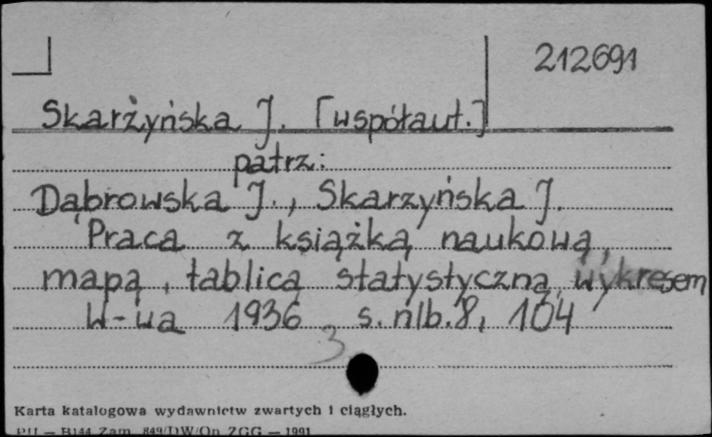 212691
Skarżyńska J. [współaut.]
patrz:
Dąbrowska J., Skarzyńska J.
Praca z książką naukową,
mapą, tablicą statystyczną, wykresem
W-wa 1936 s. nlb. 8, 104
3
Karta katalogowa wydawnictw zwartych i ciągłych.
PU — B144 Zam. 849/DW/On ZGG — 1991